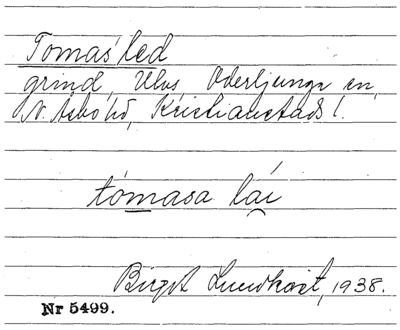 Tomas led
grind, Ulvs Oderljunga sn,
N. Åsbo hd, Kristianstads l.
tómasa lái
Birgit Lundkvist, 1938.
Nr 5499.